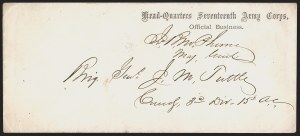 Head-Quarters Seventeenth Army Corps,
Official Business.
Jas B McPherson
Maj Genl
Brig Genl J. M. Tuttle
Comdg 3d Div. 15 AC